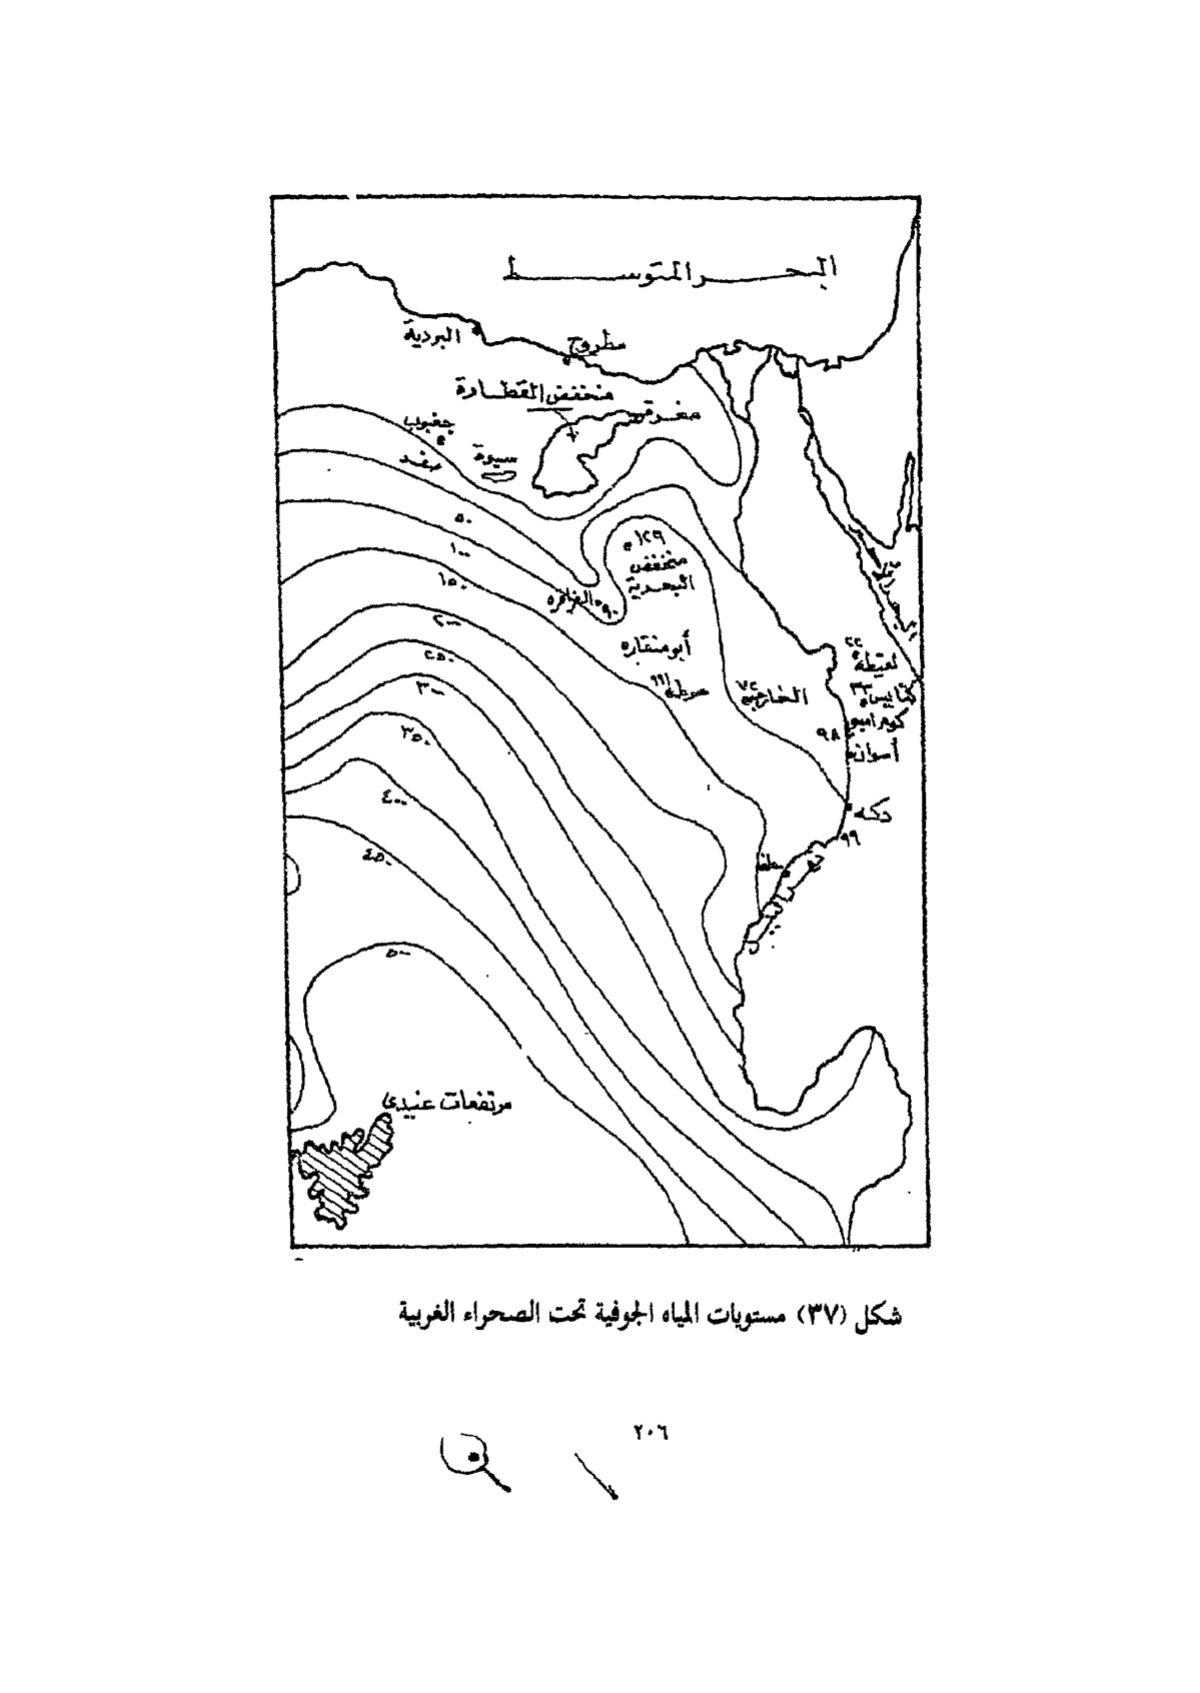 البحر المتوسط
البردية
مطروح
منخفض القطارة
مغرة
جغبوب
سيوة
صفر
٥٠
١٠٠
١٥٠
٢٠٠
٢٥٠
٣٠٠
٣٥٠
٤٠٠
٤٥٠
٥٠٠
١٢٩
منخفض
البحرية
الفرافره
٩٠
أبو منقاره
الخارجة
٧٢
٢٢
٣٣
كوم امبو
٩٨
أسوان
دكه
٩٩
مرتفعات عنيدى
شكل (٣٧) مستويات المياه الجوفية تحت الصحراء الغربية
٢٠٦